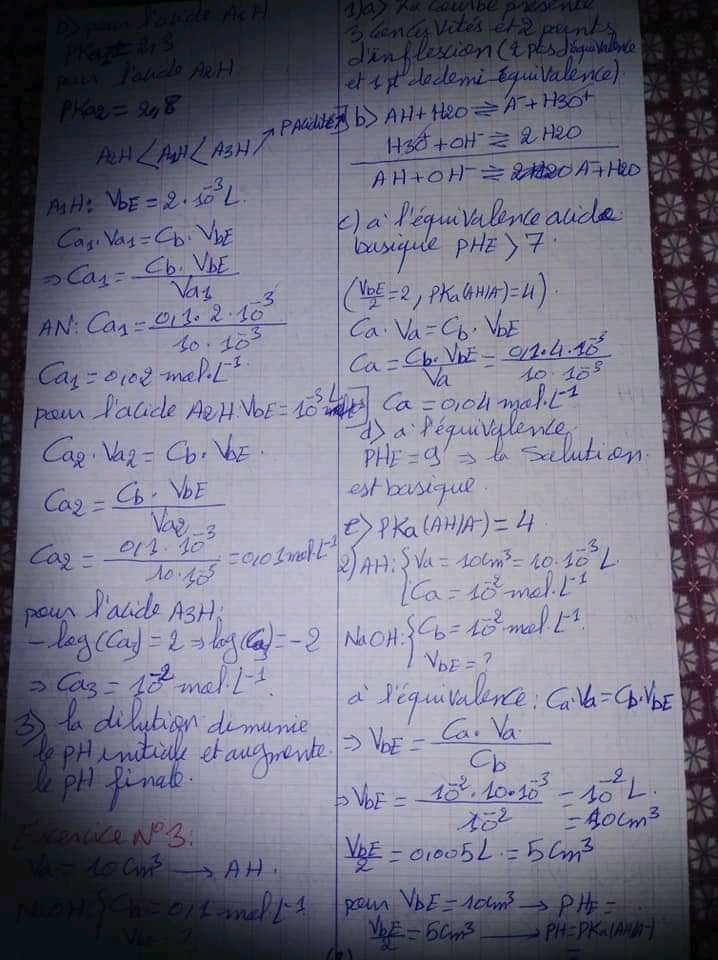 b) pour l'acide A1H
pour l'acide A2H
PKa2 = 2,8
A2H < A1H < A3H
A1H: VbE = 2 · 10⁻³ L.
Ca1 · Va1 = Cb · VbE
⇒ Ca1 = Cb · VbE / Va1
AN: Ca1 = 0,1 · 2 · 10⁻³ / 10 · 10⁻³
Ca1 = 0,02 mol·L⁻¹
pour l'acide A2H: VbE = 10⁻³ L
Ca2 · Va2 = Cb · VbE.
Ca2 = Cb · VbE / Va2
Ca2 = 0,1 · 10⁻³ / 10 · 10⁻³ = 0,01 mol·L⁻¹
pour l'acide A3H:
-log(Ca3) = 2 ⇒ log(Ca3) = -2
⇒ Ca3 = 10⁻² mol·L⁻¹.
3) la dilution dimunie
le PH initiale et augmente
le pH finale.
Exercice N°3:
Va = 10cm³ → AH.
NaOH { Cb = 0,1 mol·L⁻¹
VbE = ?
1) a) La courbe présente
3 concavités et 2 points
d'inflexion (1 pt d'équivalence
et 1 pt de demi équivalence).
b) AH + H2O ⇌ A⁻ + H3O⁺
H3O⁺ + OH⁻ ⇌ 2 H2O
AH + OH⁻ ⇌ A⁻ + H2O
c) à l'équivalence acido
basique PHE > 7.
(VbE/2 = 2, PKa(AH/A⁻) = 4).
Ca · Va = Cb · VbE
Ca = Cb · VbE / Va = 0,1 · 4 · 10⁻³ / 10 · 10⁻³
Ca = 0,04 mol·L⁻¹
d) à l'équivalence.
PHE = 9 ⇒ la solution
est basique.
e) PKa (AH/A⁻) = 4.
2) AH: { Va = 10cm³ = 10·10⁻³ L.
Ca = 10⁻² mol·L⁻¹
NaOH: { Cb = 10⁻² mol·L⁻¹.
VbE = ?
à l'équivalence: Ca·Va = Cb·VbE
⇒ VbE = Ca · Va / Cb
⇒ VbE = 10⁻² · 10 · 10⁻³ / 10⁻² = 10⁻² L.
= 10cm³
VbE/2 = 0,005L = 5cm³
pour VbE = 10cm³ → PHE =
VbE/2 = 5cm³ → PH = PKa(AH/A⁻)